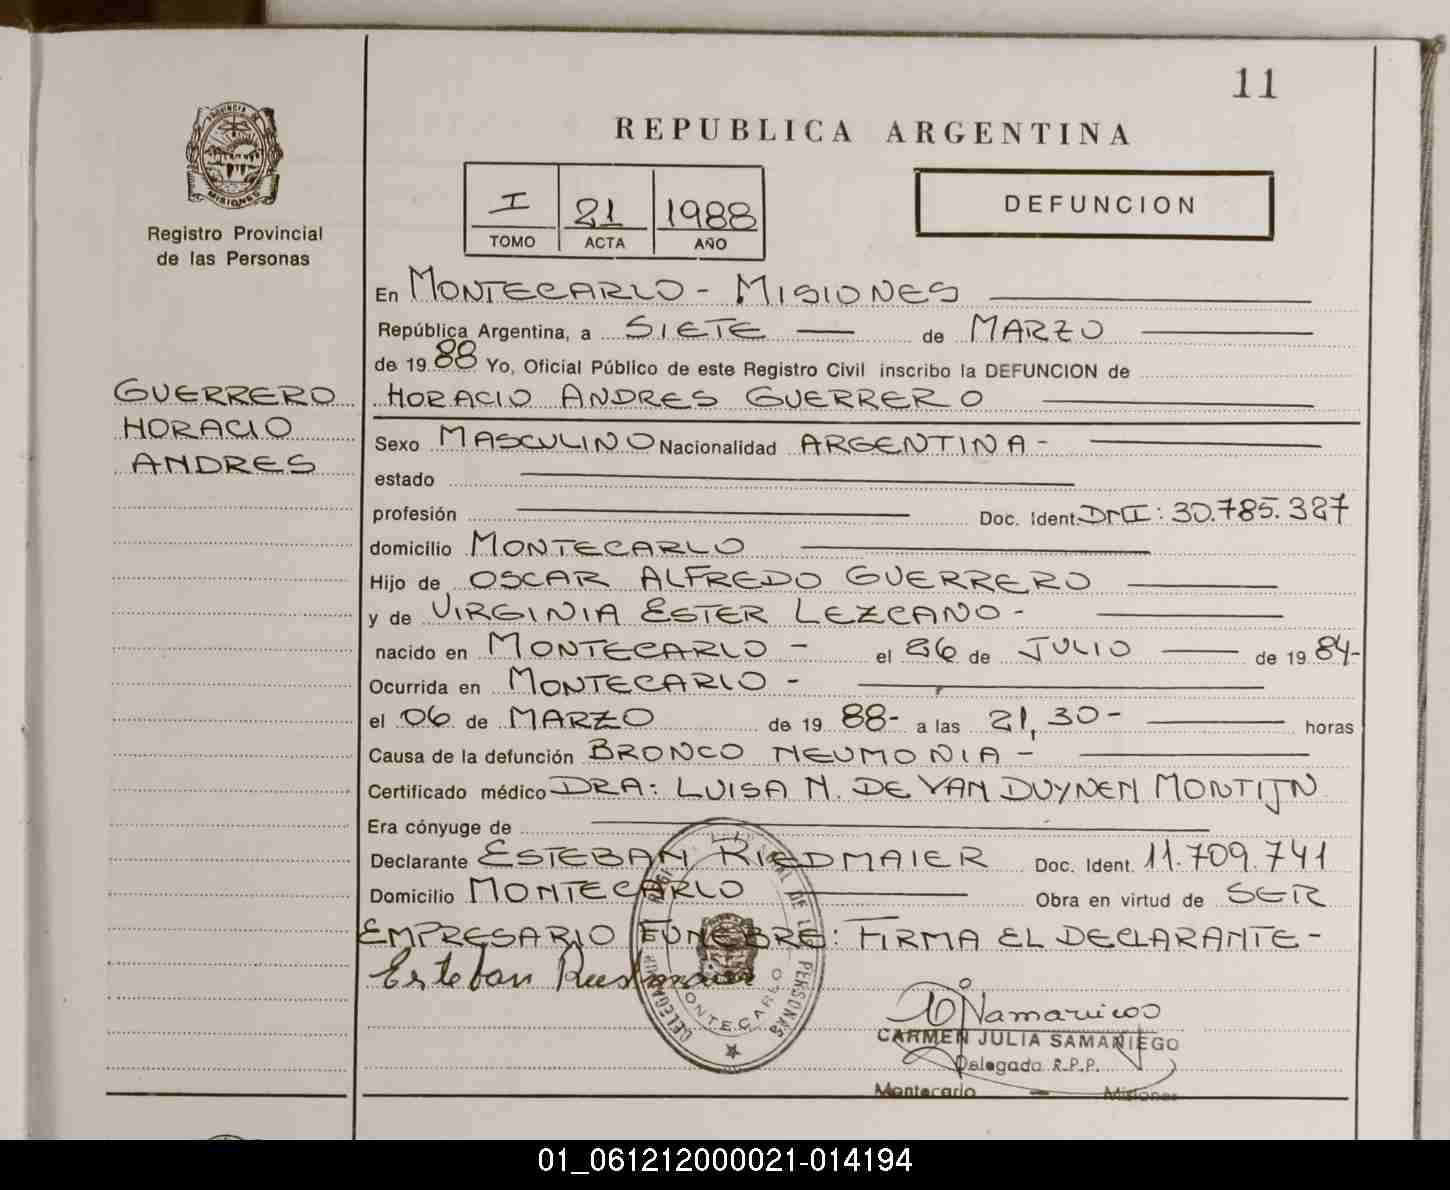 11
REPUBLICA ARGENTINA
PROVINCIA DE
MISIONES
Registro Provincial
de las Personas
I 21 1988
TOMO ACTA AÑO
DEFUNCION
En MONTECARLO - MISIONES
República Argentina, a SIETE de MARZO
de 1988 Yo, Oficial Público de este Registro Civil inscribo la DEFUNCION de
GUERRERO
HORACIO
ANDRES
HORACIO ANDRES GUERRERO
Sexo MASCULINO Nacionalidad ARGENTINA -
estado
profesión Doc. Ident. DNI: 30.785.327
domicilio MONTECARLO
Hijo de OSCAR ALFREDO GUERRERO
y de VIRGINIA ESTER LEZCANO -
nacido en MONTECARLO - el 26 de JULIO de 1984-
Ocurrida en MONTECARLO -
el 06 de MARZO de 19 88- a las 21,30- horas
Causa de la defunción BRONCO NEUMONIA -
Certificado médico DRA: LUISA N. DE VAN DUYNEN MONTIJN
Era cónyuge de
Declarante ESTEBAN RIEDMAIER Doc. Ident. 11.709.741
Domicilio MONTECARLO Obra en virtud de SER
EMPRESARIO FUNEBRE: FIRMA EL DECLARANTE -
Esteban
DE LAS PERSONAS
MONTECARLO
CARMEN JULIA SAMANIEGO
Delegada R.P.P.
Montecarlo - Misiones
01_061212000021-014194